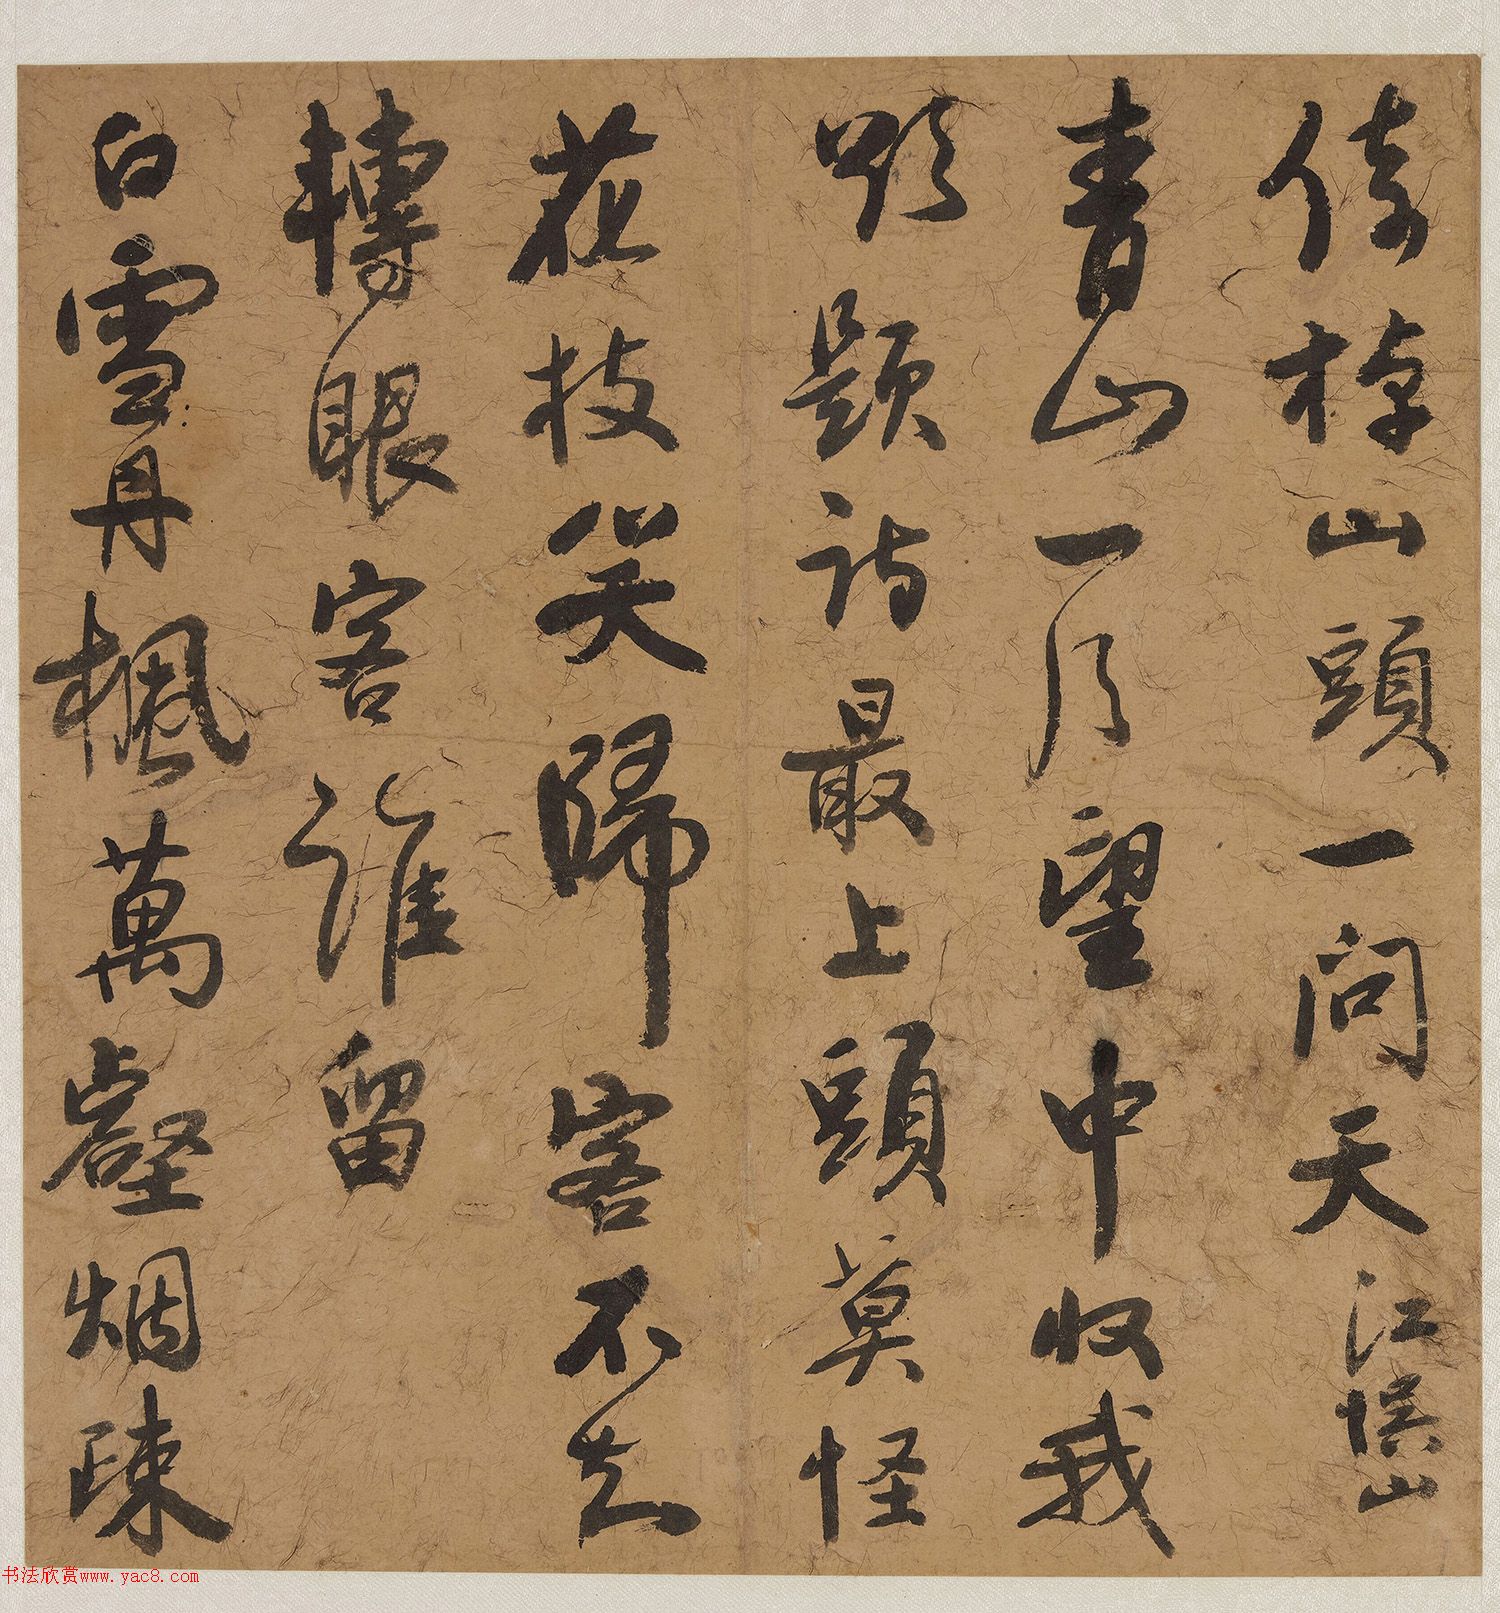 倚棹山頭一問天江山
青山一月望中收我
欲題詩最上頭莫怪
花枝笑歸客不去
轉眼客誰留
白雪丹楓萬壑烟疎
书法欣赏www.yac8.com